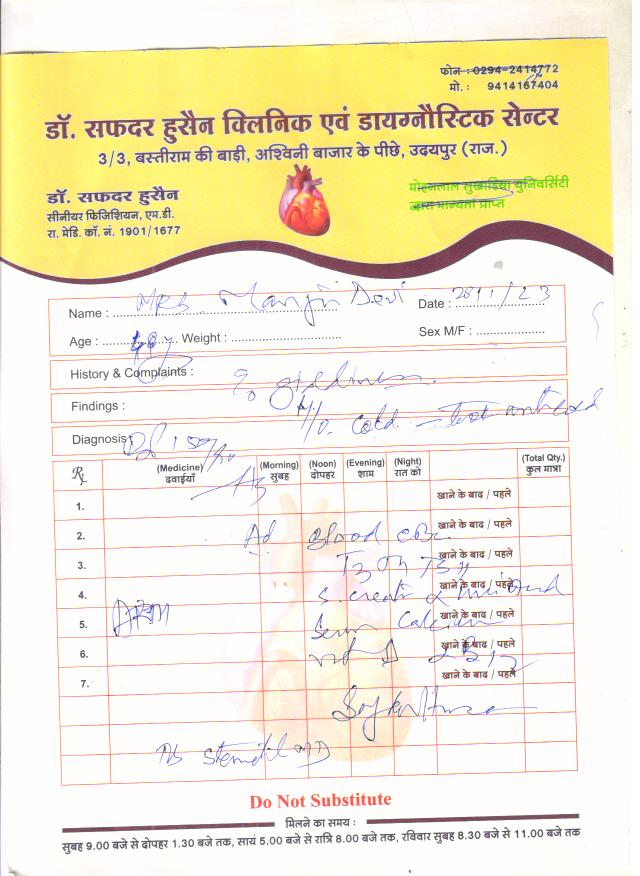 फोन : 0294-2414772
मो. : 9414167404
डॉ. सफदर हुसैन क्लिनिक एवं डायग्नौस्टिक सेन्टर
3/3, बस्तीराम की बाड़ी, अश्विनी बाजार के पीछे, उदयपुर (राज.)
डॉ. सफदर हुसैन
सीनीयर फिजिशियन, एम.डी.
रा. मेडि. कॉ. नं. 1901/1677
मोहनलाल सुखाड़िया युनिवर्सिटी
द्वारा मान्यता प्राप्त
Name : MRS Devi Date :
Age : Weight : Sex M/F :
History & Complaints : giddiness
Findings : H/o. cold
Diagnosis
Rx (Medicine) दवाईयाँ (Morning) सुबह (Noon) दोपहर (Evening) शाम (Night) रात को (Total Qty.) कुल मात्रा
1. खाने के बाद / पहले
2. Ad Blood CBC खाने के बाद / पहले
3. T3 T4 TSH खाने के बाद / पहले
4. S. Creat खाने के बाद / पहले
5. Serum Calcium खाने के बाद / पहले
6. vit D B12 खाने के बाद / पहले
7. खाने के बाद / पहले
stemetil MD
Do Not Substitute
मिलने का समय :
सुबह 9.00 बजे से दोपहर 1.30 बजे तक, सायं 5.00 बजे से रात्रि 8.00 बजे तक, रविवार सुबह 8.30 बजे से 11.00 बजे तक